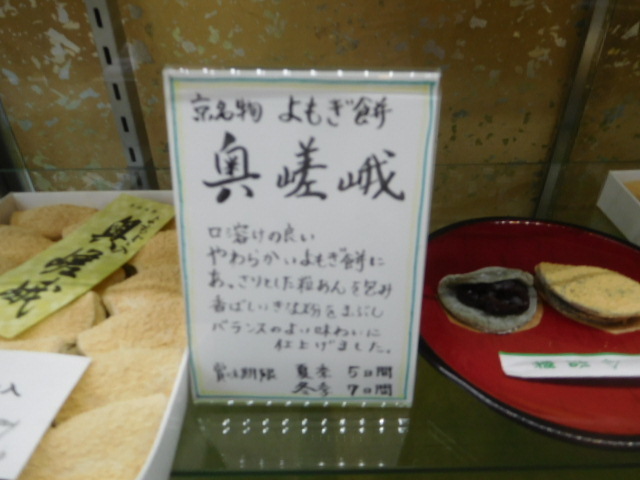 京名物 よもぎ餅
奥嵯峨
口溶けの良い
やわらかいよもぎ餅に
あっさりとした粒あんを包み
香ばしいきな粉をまぶし
バランスのよい味わいに
仕上げました。
賞味期限 夏季 5日間
冬季 7日間
奥嵯峨
入